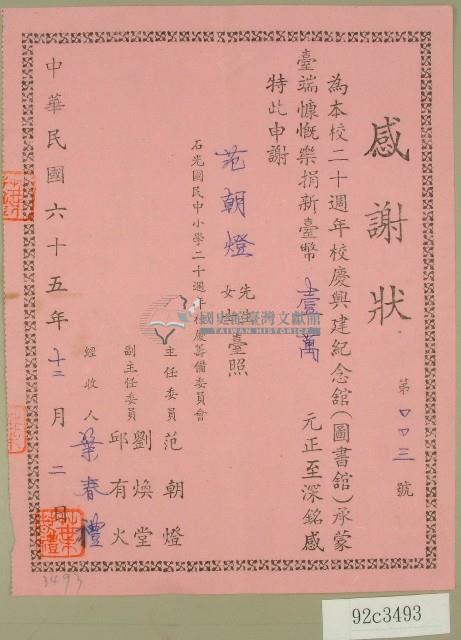 感謝狀
第 〇〇三 號
為本校二十週年校慶興建紀念館(圖書館)承蒙
臺端慷慨樂捐新臺幣 壹萬 元正至深銘感
特此申謝
范朝燈 先生 女士 臺照
石光國民中小學二十週年校慶籌備委員會
主任委員 范朝燈
副主任委員 劉煥堂
邱有火
經收人 葉春禮
中華民國六十五年 十二 月 二 日
國史館臺灣文獻館
TAIWAN HISTORICA
3493
92c3493